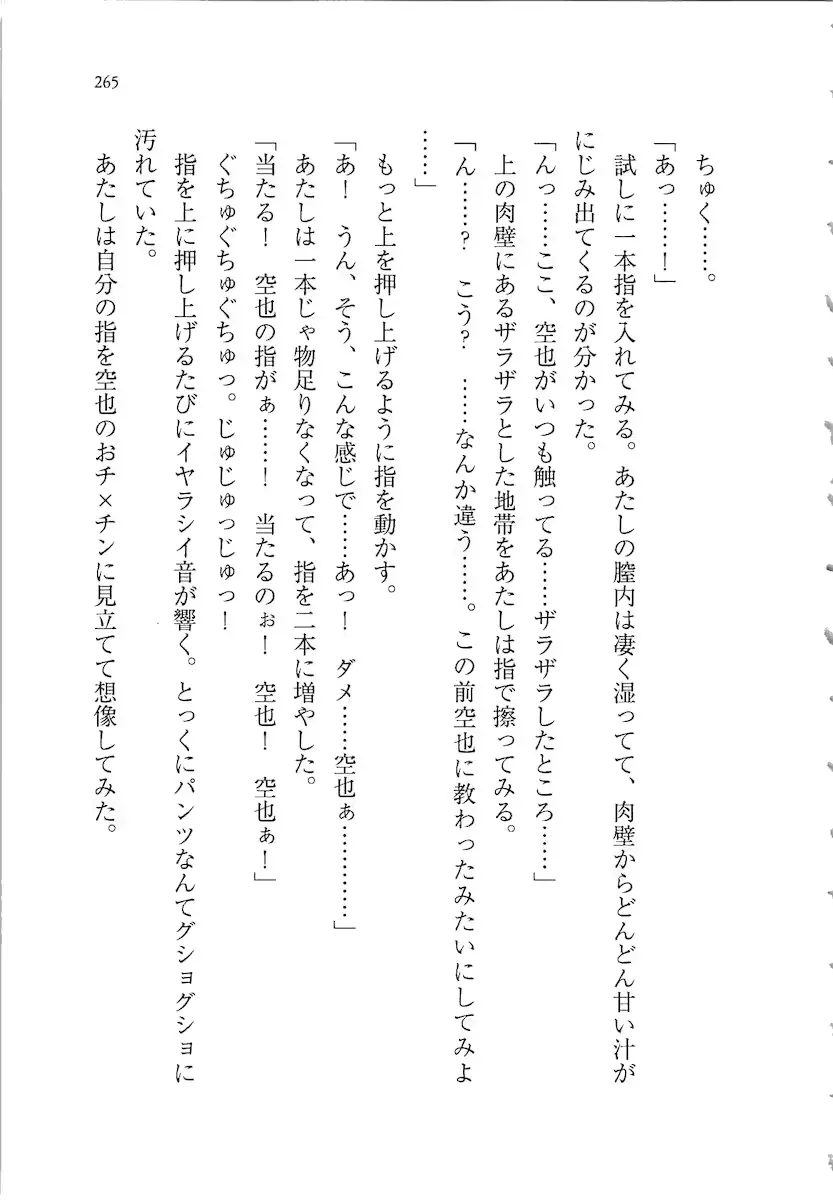 265
ちゅく……。
「あっ……！」
試しに一本指を入れてみる。あたしの膣内は凄く湿ってて、肉壁からどんどん甘い汁が
にじみ出てくるのが分かった。
「んっ……ここ、空也がいつも触ってる……ザラザラしたところ……」
上の肉壁にあるザラザラとした地帯をあたしは指で擦ってみる。
「ん……？　こう？　……なんか違う……。この前空也に教わったみたいにしてみよ
……」
もっと上を押し上げるように指を動かす。
「あ！　うん、そう、こんな感じで……あっ！　ダメ……空也ぁ…………」
あたしは一本じゃ物足りなくなって、指を二本に増やした。
「当たる！　空也の指がぁ……！　当たるのぉ！　空也！　空也ぁ！」
ぐちゅぐちゅぐちゅっ。じゅじゅっじゅっ！
指を上に押し上げるたびにイヤラシイ音が響く。とっくにパンツなんてグショグショに
汚れていた。
あたしは自分の指を空也のおチ×チンに見立てて想像してみた。